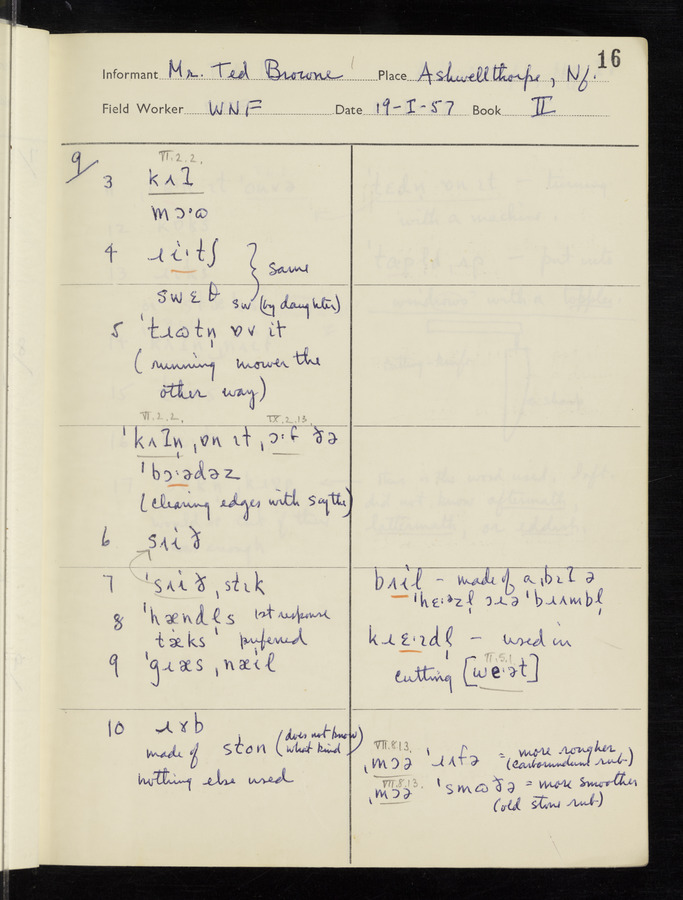 16
Informant Mr. Ted Browne Place Ashwellthorpe, Nf.
Field Worker WNF Date 19-I-57 Book II
9/
VI.2.2.
3 kʌɪ
mɔ·ɷ
4 ɹi·tʃ } same
swɛθ sw (by daughter)
5 ˈtɹɷtn̩ ɒv it
(running mower the
other way)
VI.2.2. IX.2.13.
ˈkʌɪn̩ ˌɒn ɪt ˌɔ·f ðə
ˈbɔ·ədəz
(clearing edges with scythe)
6 sɹið
7 ˈsɹið ˌstɪk
8 ˈhændl̩s 1st response
tæks preferred
9 ˈgɹæs ˌnæil
10 ɹɤb
made of ston (does not know
what kind)
nothing else used
bɹil – made of a ˌbɪɪ ə
ˈhɛ·əzl̩ ɔɹə ˈbɹɪmbl̩
kɹɛ·ɪdl̩ – used in
VI.5.1
cutting [we·ət]
VII.8.13.
ˌmɔə ˈɹʌfə = more rougher
(carborundum rub)
VII.8.13.
ˌmɔə ˈsmɷðə = more smoother
(old stone rub)